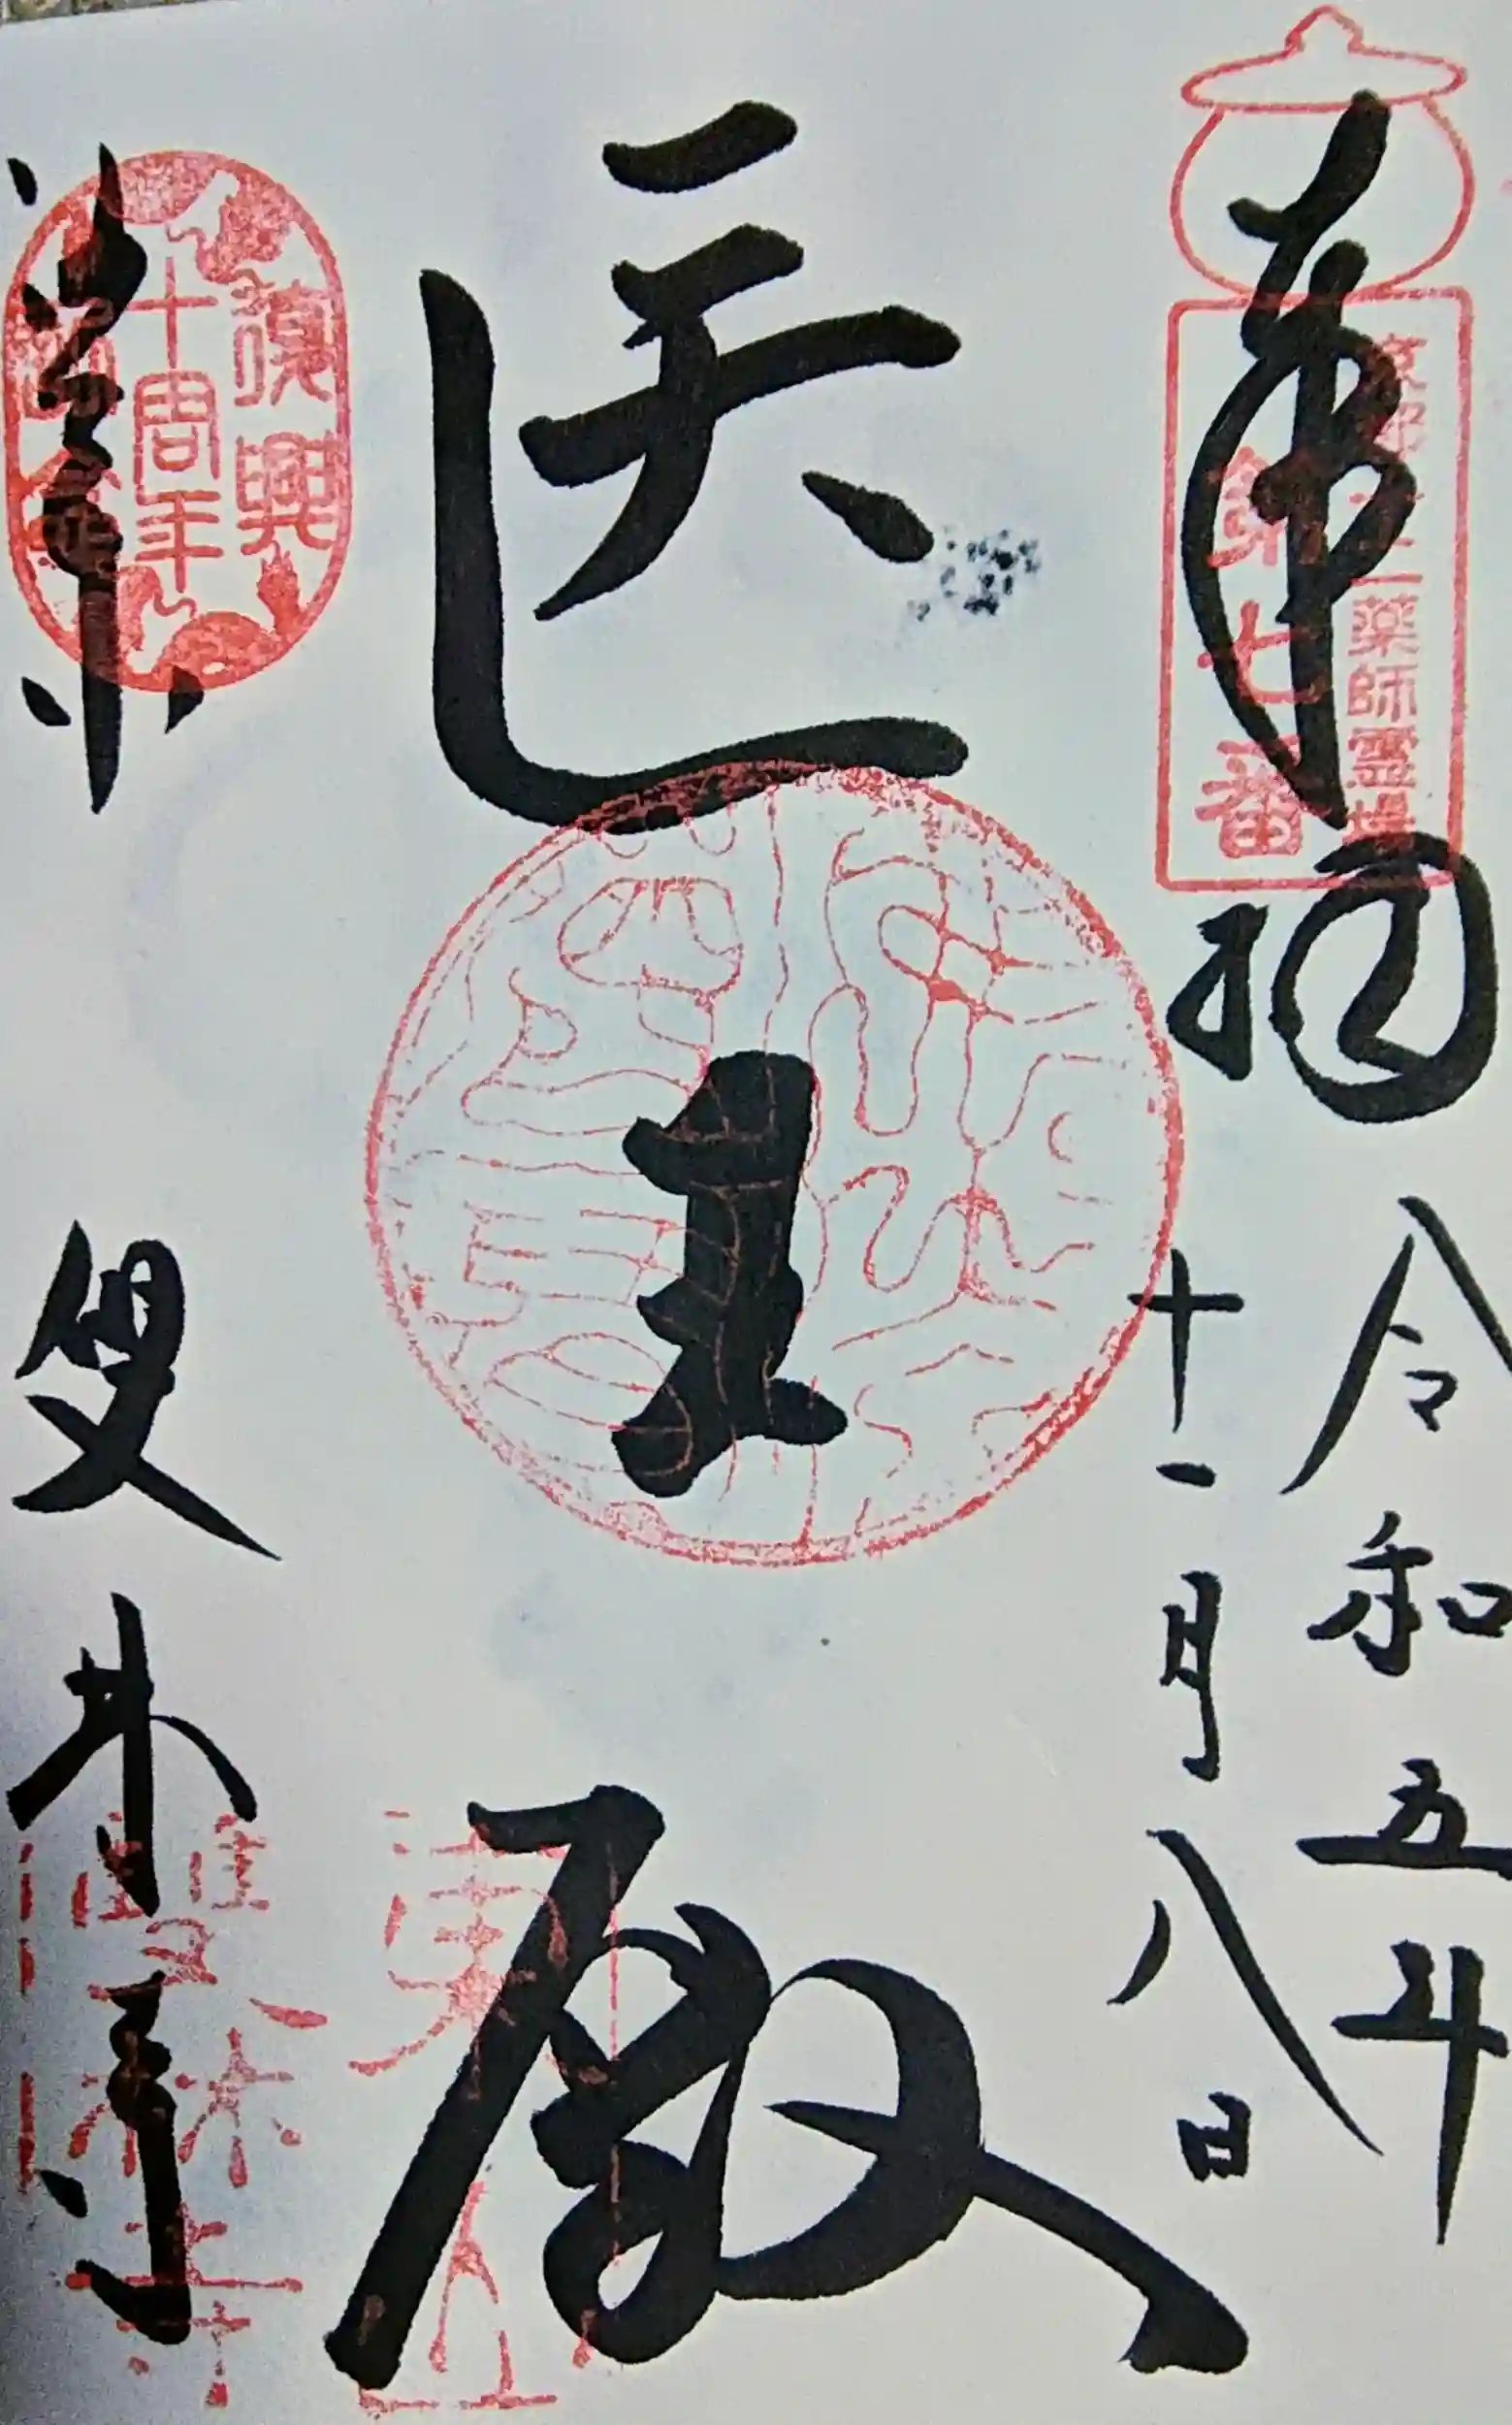 奉拝
京都十二薬師霊場
第七番
令和五年
十一月八日
医王殿
復興
十周年
東山
双林寺